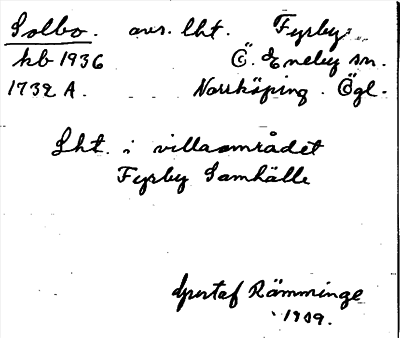 Solbo. avs. lht. Fyrby
kb 1936 Ö. Eneby sn.
1732 A. Norrköping. Ögl.
Lht. i villaområdet
Fyrby Samhälle
Gustaf Rämminge
1909.